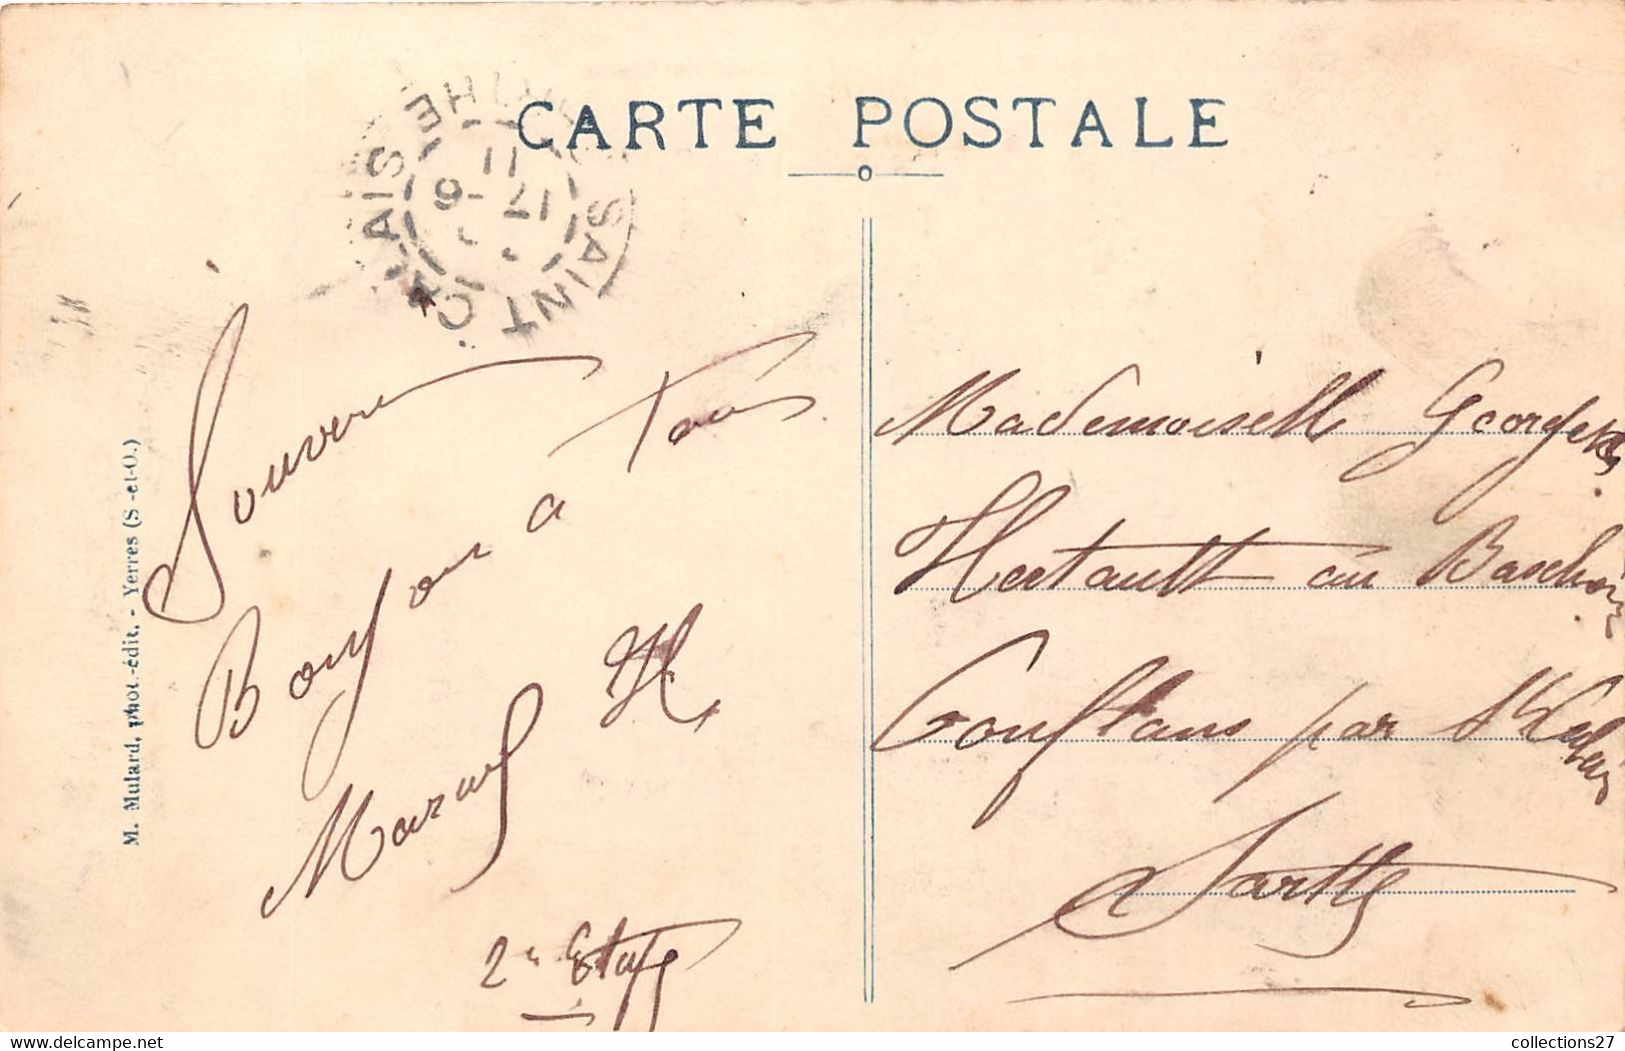 CARTE POSTALE
SAINT CALAIS SARTHE
11
17 - 6
M. Mulard, phot.-édit. - Yerres (S.-et-O.)
Souvenir
Bonjour a Tous
Marcel H
2e Etape
Mademoiselle Georgette
Hertault au
Conflans par St Calais
Sarthe
www.delcampe.net
collections27